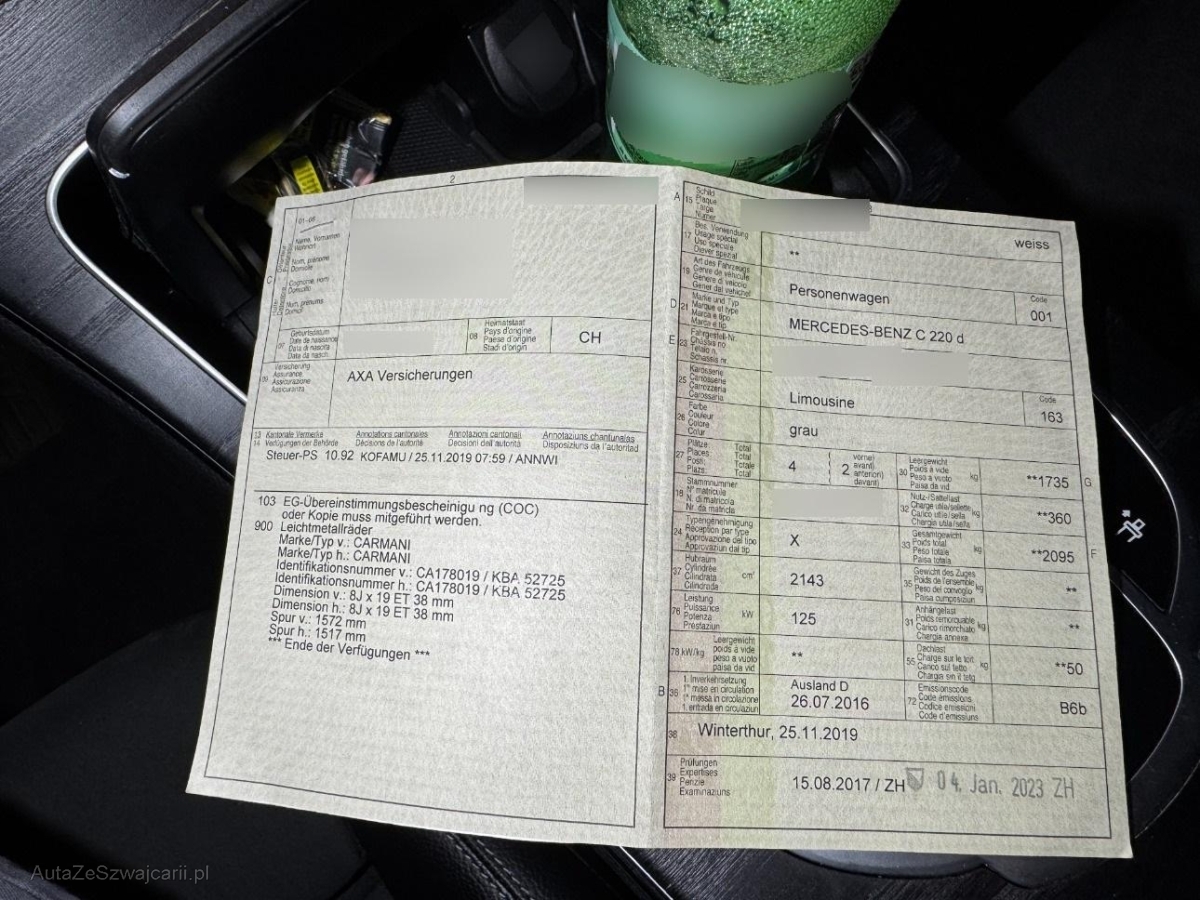 2
01-06
C
Name, Vornamen
Wohnort
Nom, prénoms
Domicile
Cognome, nomi
Domicilio
Num, prenums
Domicil
07
Geburtsdatum
Date de naissance
Data di nascita
Data da nasch.
08
Heimatstaat
Pays d'origine
Paese d'origine
Stadi d'origin
CH
09
Versicherung
Assurance
Assicurazione
Assicuranza
AXA Versicherungen
13
14
Kantonale Vermerke
Verfügungen der Behörde
Annotations cantonales
Décisions de l'autorité
Annotazioni cantonali
Decisioni dell'autorità
Annotaziuns chantunalas
Disposiziuns da l'autoritad
Steuer-PS 10.92 KOFAMU / 25.11.2019 07:59 / ANNWI
103 EG-Übereinstimmungsbescheinigu ng (COC)
oder Kopie muss mitgeführt werden.
900 Leichtmetallräder
Marke/Typ v.: CARMANI
Marke/Typ h.: CARMANI
Identifikationsnummer v.: CA178019 / KBA 52725
Identifikationsnummer h.: CA178019 / KBA 52725
Dimension v.: 8J x 19 ET 38 mm
Dimension h.: 8J x 19 ET 38 mm
Spur v.: 1572 mm
Spur h.: 1517 mm
*** Ende der Verfügungen ***
A
15
Schild
Plaque
Targa
Numer
weiss
17
Bes. Verwendung
Usage spécial
Uso speciale
Diever spezial
**
19
Art des Fahrzeugs
Genre de véhicule
Genere di veicolo
Gener dal vehichel
Personenwagen
Code
001
D
21
Marke und Typ
Marque et type
Marca e tipo
Marca e tip
MERCEDES-BENZ C 220 d
E
23
Fahrgestell-Nr.
Châssis no
Telaio n.
Schassis nr.
25
Karosserie
Carrosserie
Carrozzeria
Carossaria
Limousine
Code
163
26
Farbe
Couleur
Colore
Colur
grau
27
Plätze: Total
Places: Total
Posti: Totale
Plazs: Total
4
2
vorne)
avant)
anteriori)
davant)
30
Leergewicht
Poids à vide
Peso a vuoto
Paisa da vid
kg
**1735
G
18
Stammnummer
N° matricule
N. di matricola
Nr. da matricla
32
Nutz-/Sattellast
Charge utile/sellette
Carico utile/sella
Chargia utila/sella
kg
**360
24
Typengenehmigung
Réception par type
Approvazione del tipo
Approvaziun dal tip
X
33
Gesamtgewicht
Poids total
Peso totale
Paisa totala
kg
**2095
F
37
Hubraum
Cylindrée
Cilindrata
Cilindrada
cm³
2143
35
Gewicht des Zuges
Poids de l'ensemble
Peso del convoglio
Paisa cumposiziun
kg
**
76
Leistung
Puissance
Potenza
Prestaziun
kW
125
31
Anhängelast
Poids remorquable
Carico rimorchiato
Chargia annexa
kg
**
78 kW/kg
Leergewicht
poids à vide
peso a vuoto
paisa da vid
**
55
Dachlast
Charge sur le toit
Carico sul tetto
Chargia sin il tetg
kg
**50
B
36
1. Inverkehrsetzung
1re mise en circulation
1a messa in circolazione
1. entrada en circulaziun
Ausland D
26.07.2016
72
Emissionscode
Code émissions
Codice emissioni
Code d'emissiuns
B6b
38
Winterthur, 25.11.2019
39
Prüfungen
Expertises
Perizie
Examinaziuns
15.08.2017 / ZH
04. Jan. 2023 ZH
AutaZeSzwajcarii.pl